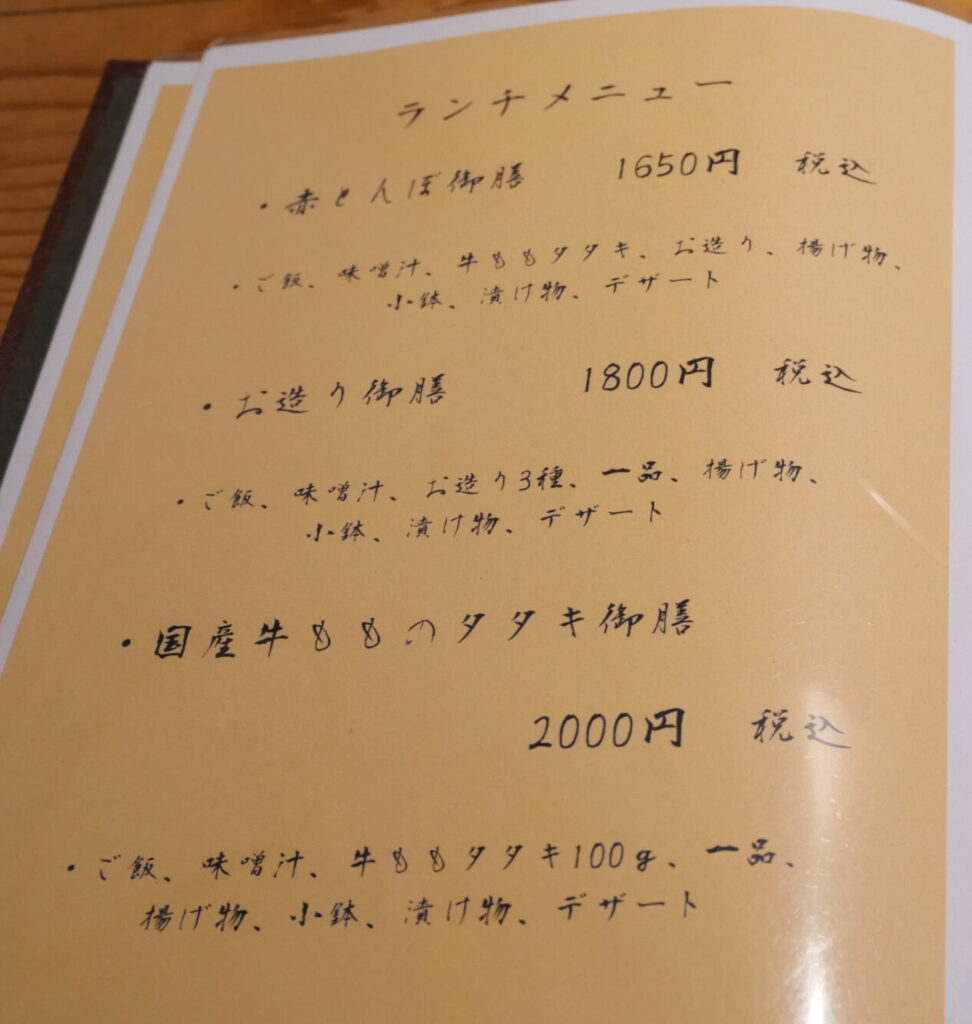 ランチメニュー
・赤とんぼ御膳 1650円 税込
・ご飯、味噌汁、牛ももタタキ、お造り、揚げ物、
小鉢、漬け物、デザート
・お造り御膳 1800円 税込
・ご飯、味噌汁、お造り3種、一品、揚げ物、
小鉢、漬け物、デザート
・国産牛もものタタキ御膳
2000円 税込
・ご飯、味噌汁、牛ももタタキ100g、一品、
揚げ物、小鉢、漬け物、デザート